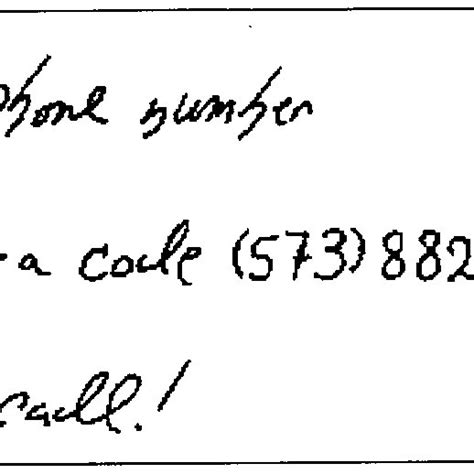 phone number
-a code (573) 882
call!